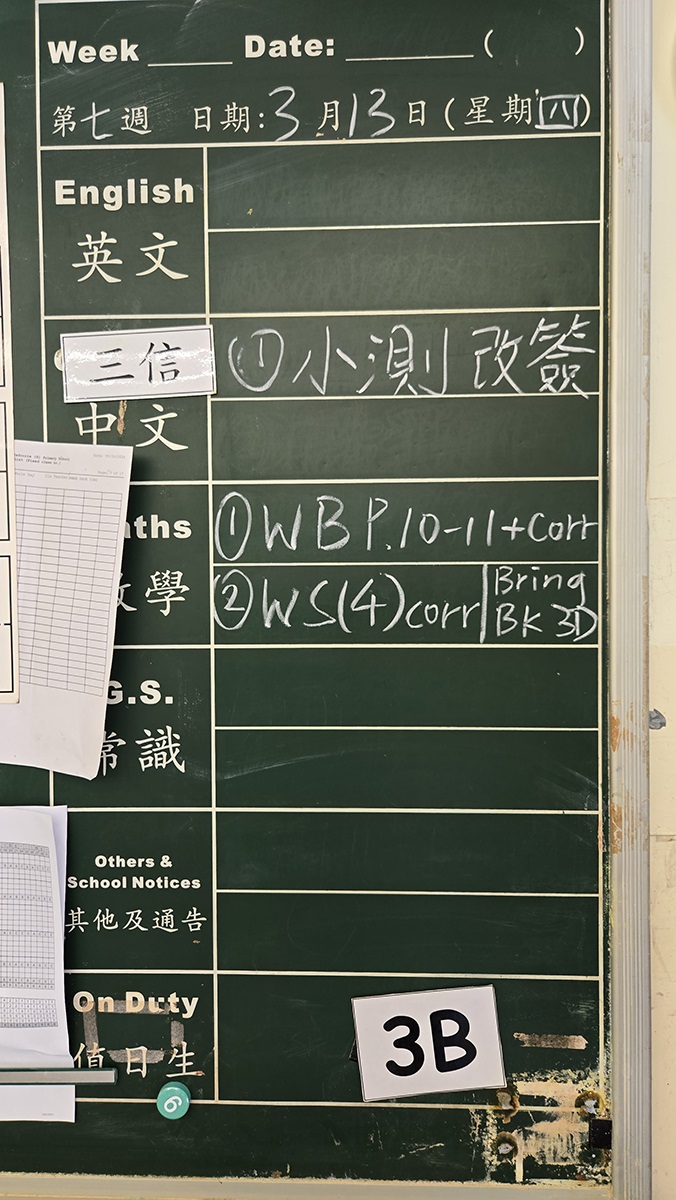 Week ____ Date: ______ (      )
第七週 日期:3月13日(星期四)
English
英文
三信
①小測改簽
中文
①WB P.10-11+Corr
aths
②WS(4)corr|Bring BK 3D
數學
G.S.
常識
Others &
School Notices
其他及通告
On Duty
值日生
3B
6